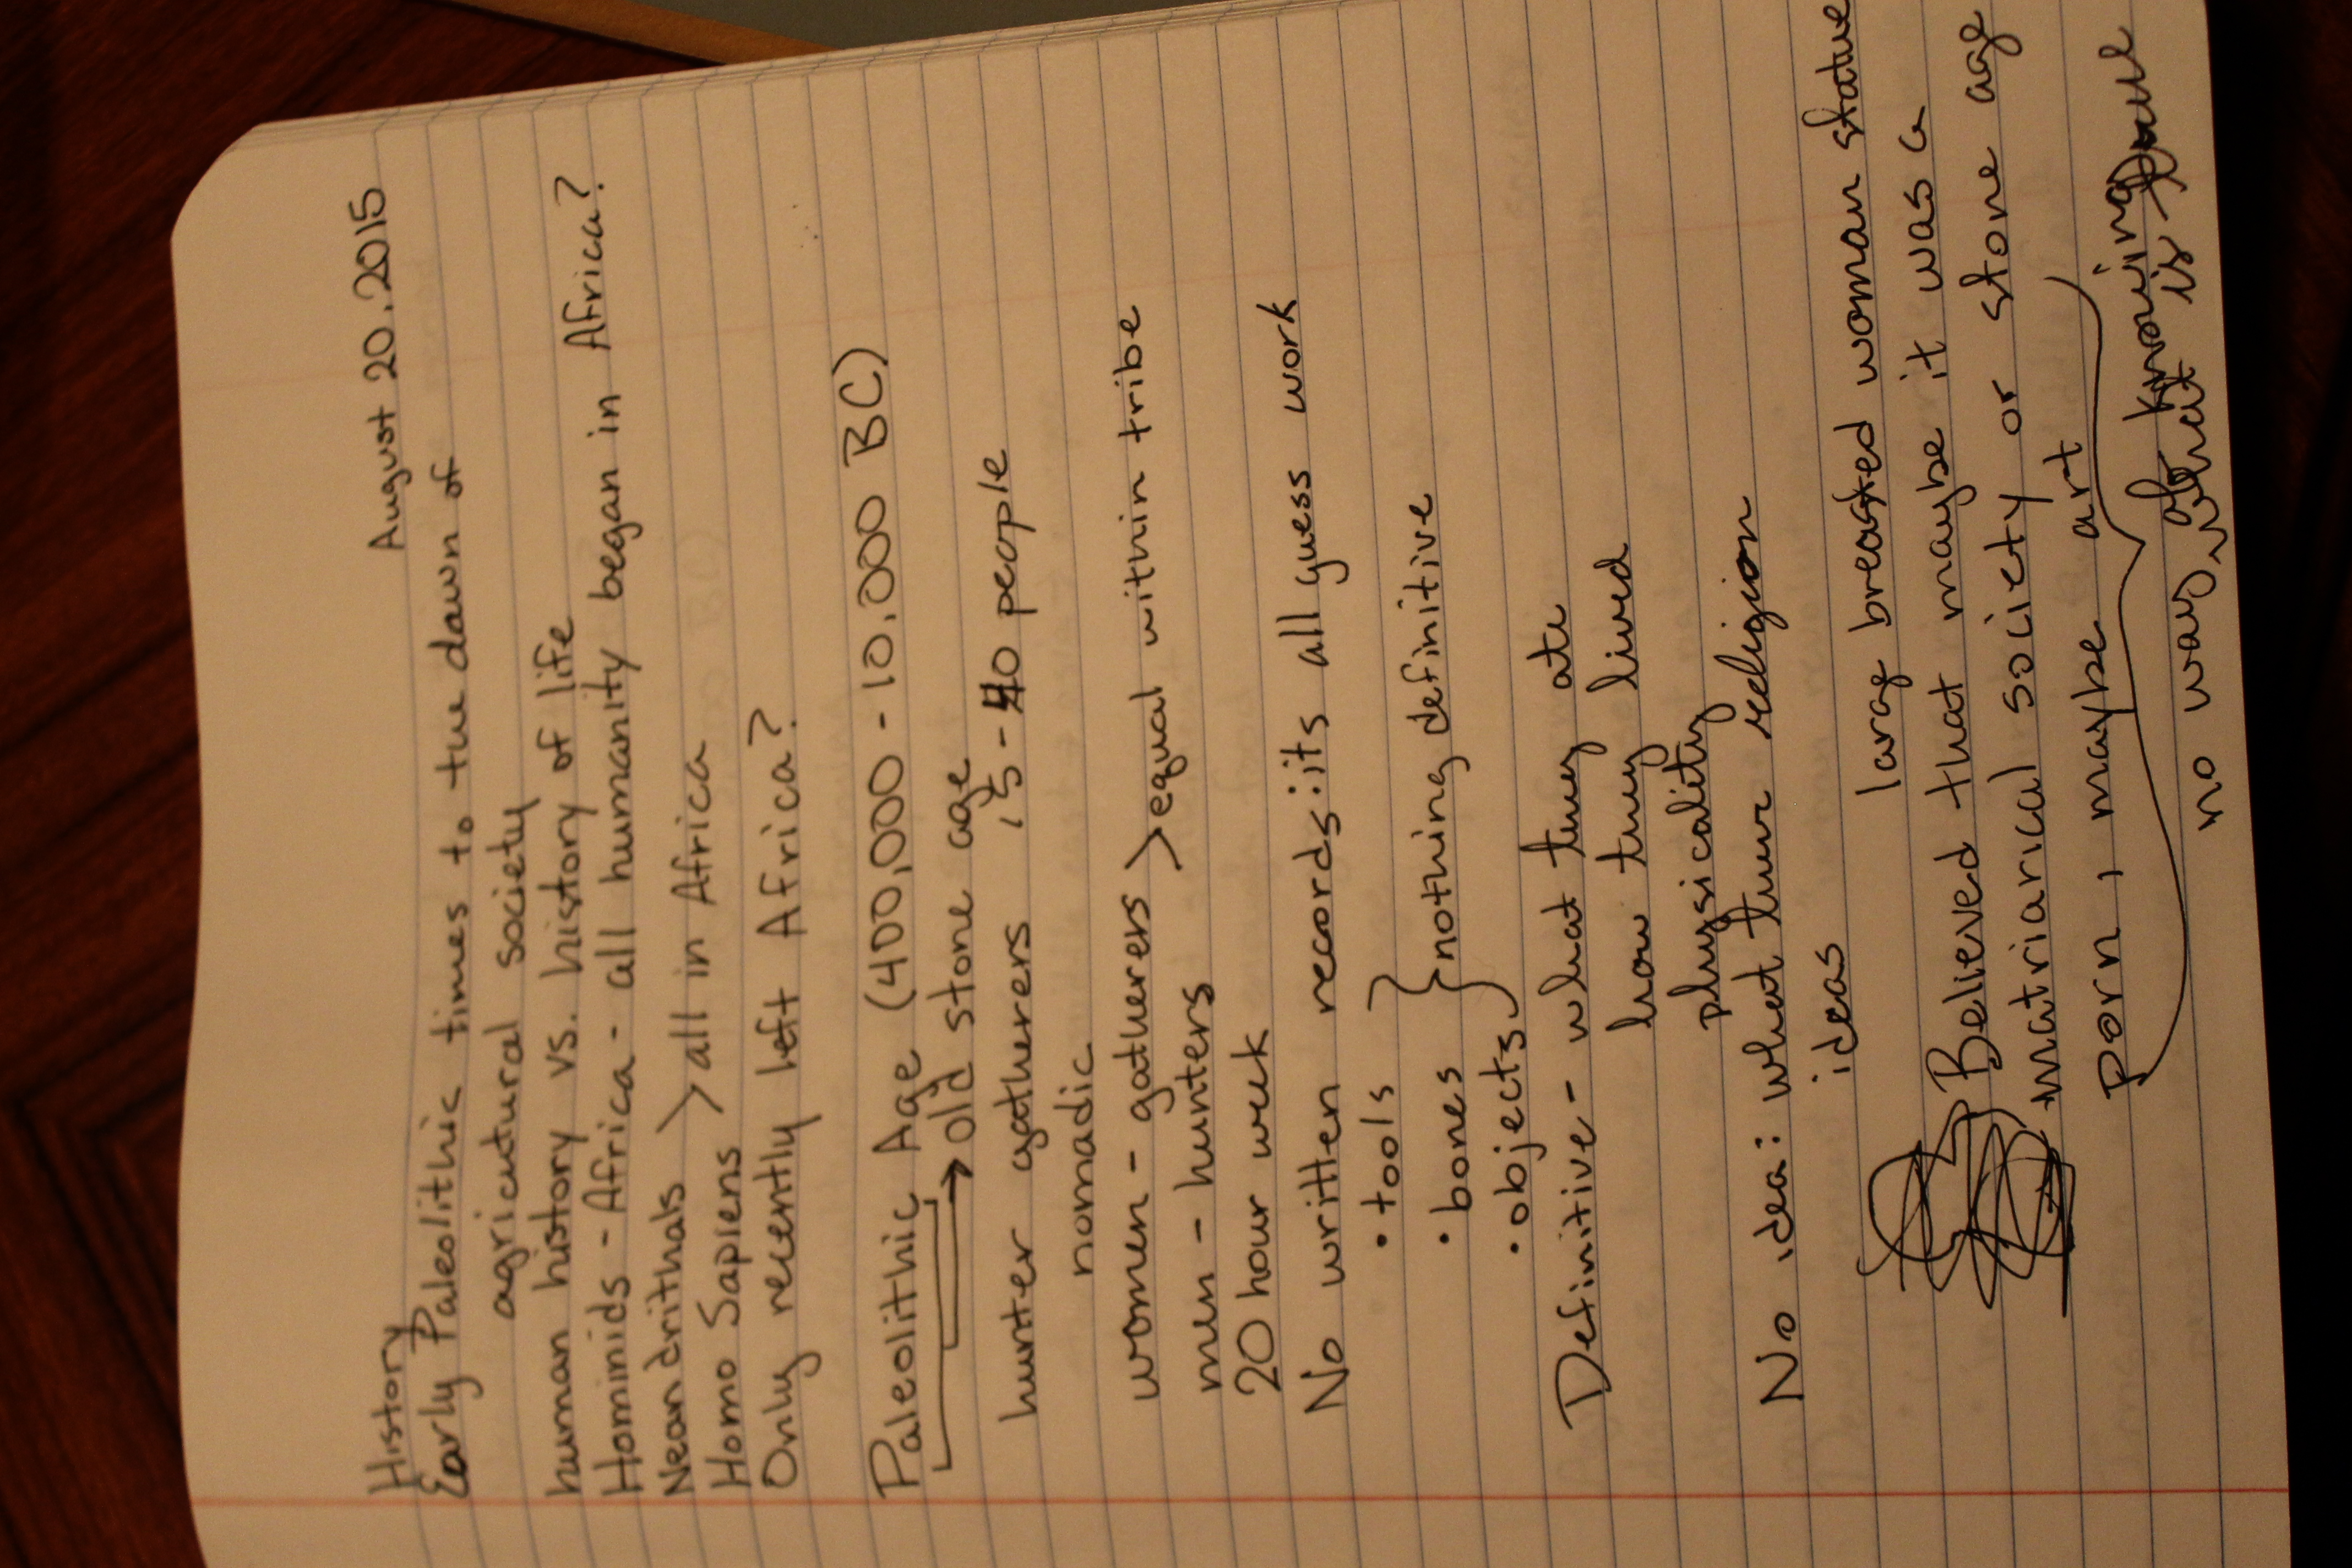 History August 20, 2015
Early Paleolithic times to the dawn of
agricutural society
human history vs. history of life
Hominids - Africa - all humanity began in Africa?
Neandrithals
> all in Africa
Homo Sapiens
Only recently left Africa?
Paleolithic Age (400,000 - 10,000 BC)
old stone age
hunter gatherers, 15-40 people
nomadic
women - gatherers
> equal within tribe
men - hunters
20 hour week
No written records: its all guess work
• tools
• bones } nothing definitive
• objects
Definitive - what they ate
how they lived
physicality
No idea: what their religion
ideas
large breasted woman statue
Believed that maybe it was a
matriarical society or stone age
porn, maybe art
no way of knowing
what is true